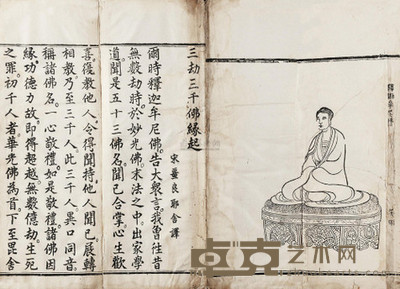 三劫三千佛緣起
宋畺良耶舍譯
爾時釋迦牟尼佛告大衆言我曾往昔
無數劫時於妙光佛末法之中出家學
道聞是五十三佛名聞已合掌心生歡
喜復教他人令得聞持他人聞已展轉
相教乃至三千人此三千人異口同音
稱諸佛名一心敬禮如是敬禮諸佛因
緣功德力故即得超越無數億劫生死
之罪初千人者華光佛爲首下至毘舍